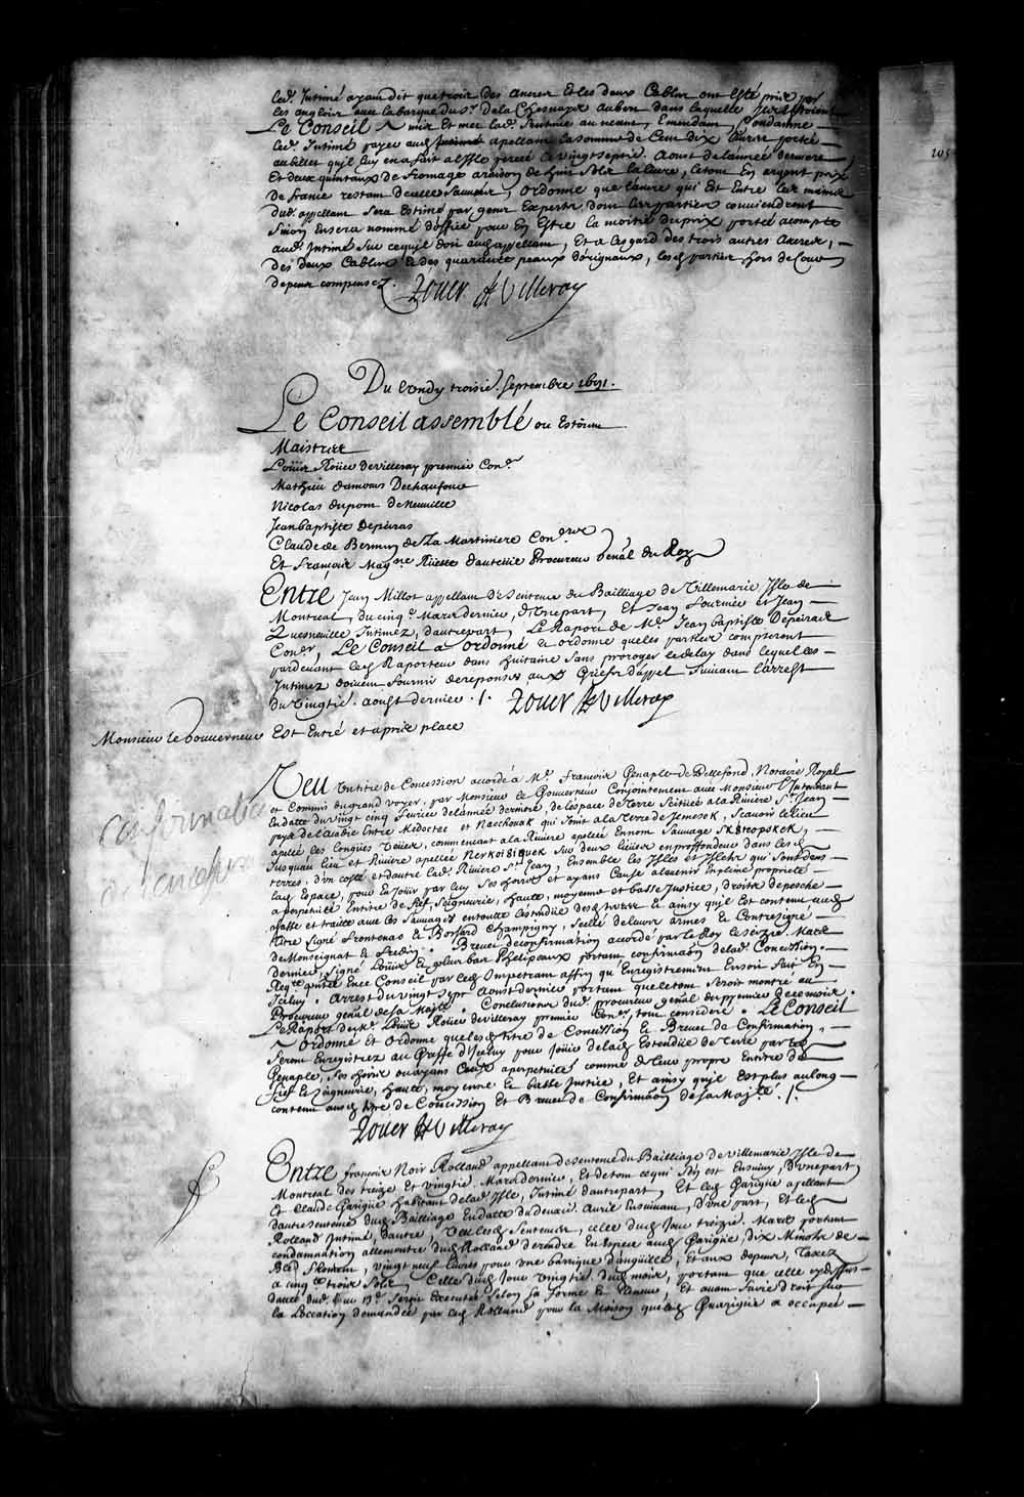 led. Intimé ayant dit que trois des ancres et les deux Cables ont esté pris par
les anglois avec la barque du Sr. de la Chesnaye aubert dans laquelle
Le Conseil A mis et met lad. Sentence au neant, Emendant Condamne
led. Intimé payer aud. appellant la somme de Cent dix livres porté
au billet qu'il luy en a fait a le vingt septie. Aoust de l'année derniere,
Et deux quintaux de fromage a raison de huit sols la livre, le tout En argent prix
de france restant de ordonne que l'ancre qui est Entre les mains
dud. appellant sera Estimé par gens Experts dont les parties conviendront
Sinon En sera nommé d'office pour En Estre la moitié du prix porté a compte
aud. Intimé sur ce qu'il doit aud. appellant, Et a l'esgard des trois autres Ancres,
des deux Cables et des quarante peaux d'orignaux, lesd. parties hors de Cour
depens compensez. Roüer de Villeray
Du Lundy troisie. Septembre 1691.
Le Conseil assemblé ou Estoient
Maistres
Loüis Roüer de Villeray premier Conser.
Mathieu damours Deschaufour
Nicolas dupont de Neuville
Jean baptiste Depeiras
Claude de Bermen de La Martiniere Coners
Et françois Magne. Rüette dauteüil Procureur genal du Roy
Entre Jean Millot appellant de Sentence du Bailliage de Villemarie Isle de
Montreal, du cinqe. Mars dernier, d'Une part, Et Jean fournier et Jean
Quesneville Intimez, d'autre part, Le Raport de Me. Jean baptiste Depeiras
Coner, Le Conseil a ordonné et ordonne que les parties compteront
pardevant led. Raporteur dans huitaine sans proroger le delay dans lequel les
Intimez doivent fournir de reponses aux Griefs d'appel Suivant l'arrest
du Vingtie. aoust dernier. Roüer de Villeray
Monsieur le Gouverneur Est Entré et a pris place
Veu Un titre de Concession accordé a Me. francois Genaple de Bellefond, Notaire Royal
et Commis du grand voyer, par Monsieur le Gouverneur Conjointement avec Monsieur l'Intendant
En datte du vingt cinq fevrier de l'année derniere, de l'espace de Terre Scituée a la Riviere St. Jean
pays de l'acadie Entre Medoctec et Naechouak qui sont a la Terre de Jemesek, Scavoir le lieu
apellé les Longües Veües, commencant a la Riviere apelée En nom Sauvage Skoropskek,
Jusqu'au lieu et Riviere apellée Nerkoisiquek sur deux lieües en proffondeur dans les
terres, d'un costé et d'autre lad. Riviere St. Jean, Ensemble les Isles et Islets qui sont dans
led. Espace, pour En Joüir par luy Ses hoirs et ayans Cause a l'avenir En pleine proprieté
a perpetuité En titre de fief, Seigneurie, haute, moyenne et basse Justice, droits de pesche
chasse et traite avec les Sauvages en toute l'estendüe des terres et ainsy qu'il Est contenu aud.
titre Signé frontenac et Bochart Champigny, Scellé de leurs armes et Contresigné
de Monseignat et fredin. Brevet de confirmation accordé par le Roy le seizie. Mars
dernier, Signé Loüis et plus bas Phelipeaux portant confirmaon de lad. Concession.
Reqte. pntée En ce Conseil par led. Impetrant affin qu'Enregistrement En soit fait En
Iceluy. Arrest du vingt Sept aoust dernier portant que le tout seroit montré au
Procureur genal de Sa Majté. Conclusions dud. procureur genal du premier de ce mois.
Le Raport de Me. Loüis Roüer de Villeray premier Coner, tout consideré. Le Conseil
a ordonné et ordonne que lesd. titre de Concession et Brevet de Confirmation
Seront Enregistrez au Greffe d'Iceluy pour Joüir de lad. Estendüe de Terre par led.
Genaple, Ses hoirs ou ayans Cause a perpetuité comme de leur propre En titre de
fief et Seigneurie, haute, moyenne et basse Justice, Et ainsy qu'il Est plus au long
contenu ausd. titre de Concession Et Brevet de Confirmaon de Sa Majté.
Roüer de Villeray
Entre françois Noir Rolland appellant de sentences du Bailliage de Villemarie Isle de
Montreal des treize Et vingtie. Mars dernier, Et de tout ce qui S'en est Ensuivy, d'Une part,
Et Claude Garigüe habitant de lad. Isle, Intimé d'autre part, Et led. Garigüe apellant
d'autre sentence dud. Bailliage En datte du Avril Ensuivant, d'Une part, Et led.
Rolland Intimé, d'autre, Veu lesd. Sentences, celle dud. Jour treizie. Mars portant
condamnation allencontre dud. Rolland de rendre En Espece aud. Garigüe, dix Minots de
Bled froment, vingt neuf livres pour Une barrique d'anguille, Et aux depens, Taxez
a cinq lt. trois Sols, Celle dud. Jour Vingtie. dud. mois, portant que celle cy dessus
Seroit Executée Selon Sa forme et Teneur, Et avant faire droit sur
la Location demandée par led. Rolland pour la Maison que led. Guarigüe a occupée